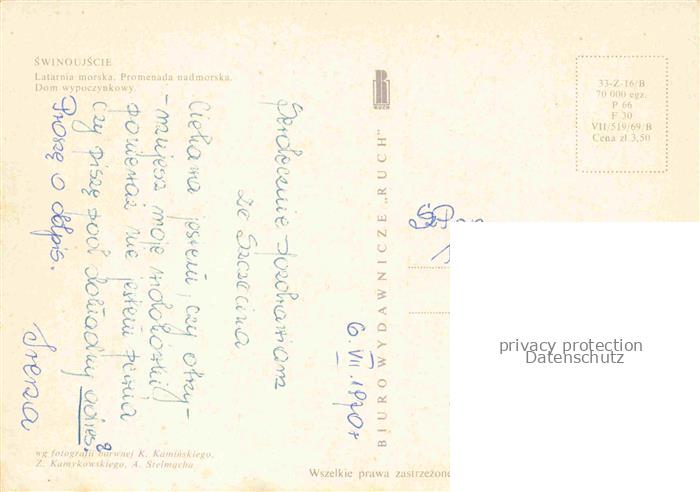 ŚWINOUJŚCIE
Latarnia morska. Promenada nadmorska.
Dom wypoczynkowy.
Serdecznie pozdrawiam
ze Szczecina
Ciekawa jestem, czy otrzy-
-mujesz moje widokówki!
ponieważ nie jestem pewna
czy piszę pod dokładny adres?
Proszę o odpis.
Irena
6.VII.1970r
wg fotografii barwnej K. Kamińskiego,
Z. Kamykowskiego, A. Stelmacha
BIURO WYDAWNICZE „RUCH"
RUCH
33-Z-16/B
70 000 egz.
P 66
F 30
VII/519/69/B
Cena zł 3,50
privacy protection
Datenschutz
Wszelkie prawa zastrzeżone